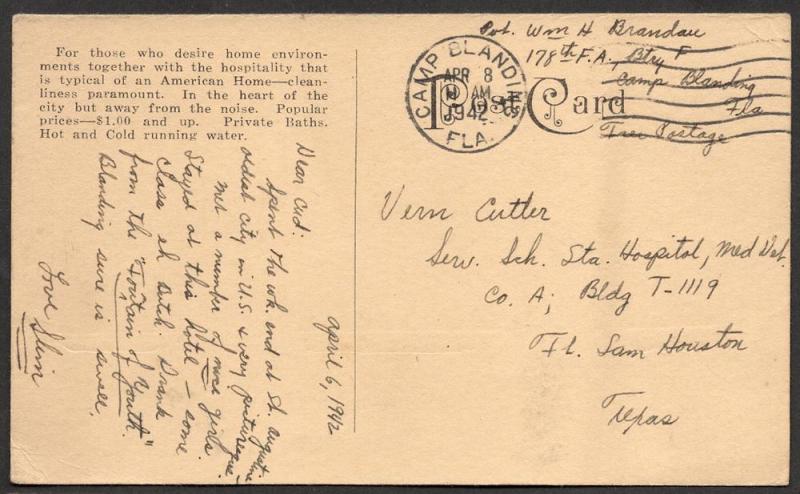 For those who desire home environ-
ments together with the hospitality that
is typical of an American Home—clean-
liness paramount. In the heart of the
city but away from the noise. Popular
prices—$1.00 and up. Private Baths.
Hot and Cold running water.
Pvt. Wm H Brandau
178th F.A., Btry F
Camp Blanding
Fla
Free Postage
CAMP BLANDING
APR 8
AM
1942
FLA.
Post Card
April 6, 1942
Dear Cud:
Spent the wk. end at St. Augustine
oldest city in U.S. & very picturesque.
met a number of nice girls
Stayed at this hotel – some
class eh Dutch. Drank
from the "Fountain of Youth."
Blanding sure is swell.
Love Slim
Vern Cutler
Serv. Sch. Sta. Hospital, Med Det.
Co. A; Bldg T-1119
Ft. Sam Houston
Texas